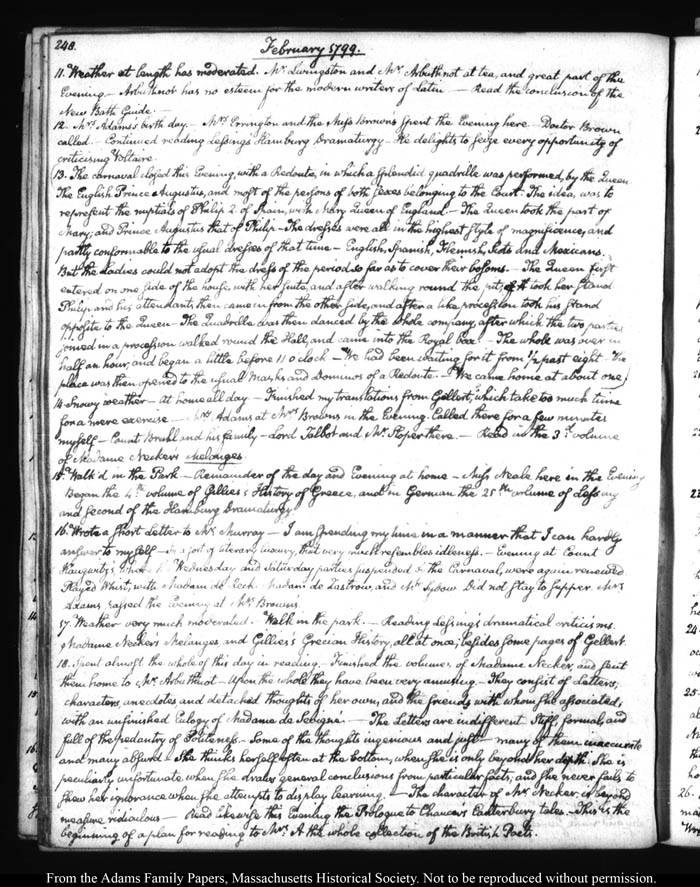 248.
February 1799.
11. Weather at length has moderated. Mr. Livingston and Mr. Arbuthnot at tea, and great part of the
Evening — Arbuthnot has no esteem for the modern writers of Latin — Read the conclusion of the
New Bath Guide. —
12. Mrs. Adams's birth day. — Mrs. Errington and the Miss Browns spent the Evening here — Doctor Brown
called. — Continued reading Lessings Hamburg Dramaturgy — He delights to seize every opportunity of
criticising Voltaire.
13. The carnaval closed this Evening, with a Redoute, in which a splendid quadrille was performed, by the Queen
The English Prince Augustus, and most of the persons of both sexes belonging to the Court. The idea, was to
represent the nuptials of Philip 2. of Spain, with Mary Queen of England. — The Queen took the part of
Mary; and Prince Augustus that of Philip — The dresses were all in the highest style of magnificence, and
partly conformable to the usual dresses of that time — English, Spanish, Flemish, Scots and Mexicans.
But the Ladies could not adopt the dress of the period so far as to cover their bosoms. — The Queen first
entered on one side of the house, with her suite, and after walking round the pit, took her stand
Philip and his attendants then came in from the other side, and after a like procession took his stand
opposite to the Queen — The Quadrille was then danced by the whole company, after which the two parties
joined in a procession walked round the Hall, and came into the Royal box. — The whole was over in
half an hour, and began a little before 11 o'clock — We had been waiting for it from 1/2 past eight — The
place was then opened to the usual Masks and Dominos of a Redoute. — We came home at about one.
14. Snowy weather — at home all day — Finished my translations from Gellert, which take too much time
for a mere exercise — Mrs. Adams at Mrs. Browns in the Evening. Called there for a few minutes
myself — Count Bruhl and his family — Lord Talbot and Mr. Sloper there. — Read in the 3d. volume
of Madame Necker's Melanges.
15. Walk'd in the Park — Remainder of the day and Evening at home — Miss Neale here in the Evening
Began the 4th. volume of Gillies's History of Greece, and in German the 25th. volume of Lessing
and second of the Hamburg Dramaturgy
16. Wrote a short letter to Mr. Murray — I am spending my time in a manner that I can hardly
answer to myself — in a sort of literary luxury, that very much resembles idleness. — Evening at Count
Haugwitz's Wednesday and Saturday parties suspended the Carnaval, were again renewed
Played Whist, with Madam de Madam de Zastrow, and Mr. Sydow Did not stay to supper Mrs.
Adams passed the Evening at Mrs. Browns
17. Weather very much moderated. — Walk in the park. — Reading Lessing's dramatical criticisms.
Madame Necker's Melanges, and Gillies's Grecian History, all at once; besides some pages of Gellert.
18. Spent almost the whole of this day in reading. — Finished the volumes of Madame Necker, and sent
them home to Mr. Arbuthnot — Upon the whole they have been very amusing. — They consist of Letters;
characters, anecdotes and detached thoughts of her own, and the friends with whom she associated;
with an unfinished Eulogy of Madame de Sevigné. — The Letters are indifferent. Stiff, formal, and
full of the pedantry of Politeness. — Some of the thoughts ingenious and just — many of them inaccurate
and many absurd. She thinks herself often at the bottom, when she is only beyond her depth. She is
peculiarly unfortunate when she draws general conclusions from particular facts, and she never fails to
shew her ignorance when she attempts to display learning. — The character of Mr. Necker, is beyond
measure ridiculous — Read likewise this Evening the Prologue to Chaucer's Canterbury tales. — This is the
beginning of a plan for reading to Mrs. A the whole collection, of the British Poets.
From the Adams Family Papers, Massachusetts Historical Society. Not to be reproduced without permission.